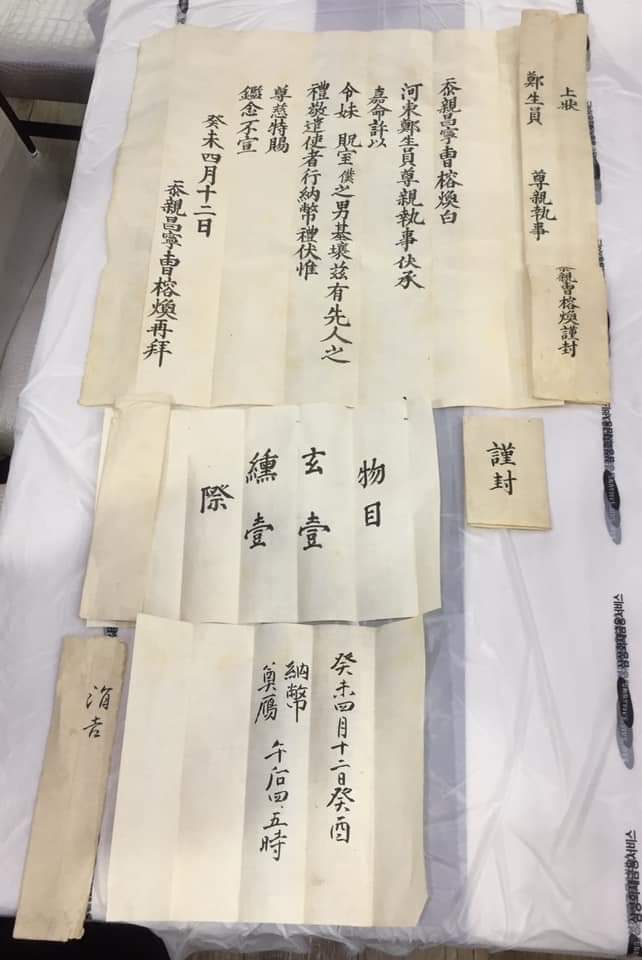 上狀
鄭生員 尊親執事
忝親曺榕煥謹封
忝親昌寧曺榕煥白
河東鄭生員尊親執事伏承
嘉命許以
令妹 貺室僕之男基壤玆有先人之
禮敬遣使者行納幣禮伏惟
尊慈特賜
鑑念不宣
癸未四月十二日
忝親昌寧曺榕煥再拜
物目
玄壹
纁壹
際
謹封
癸未四月十二日癸酉
納幣
奠鴈 午后四、五時
涓吉